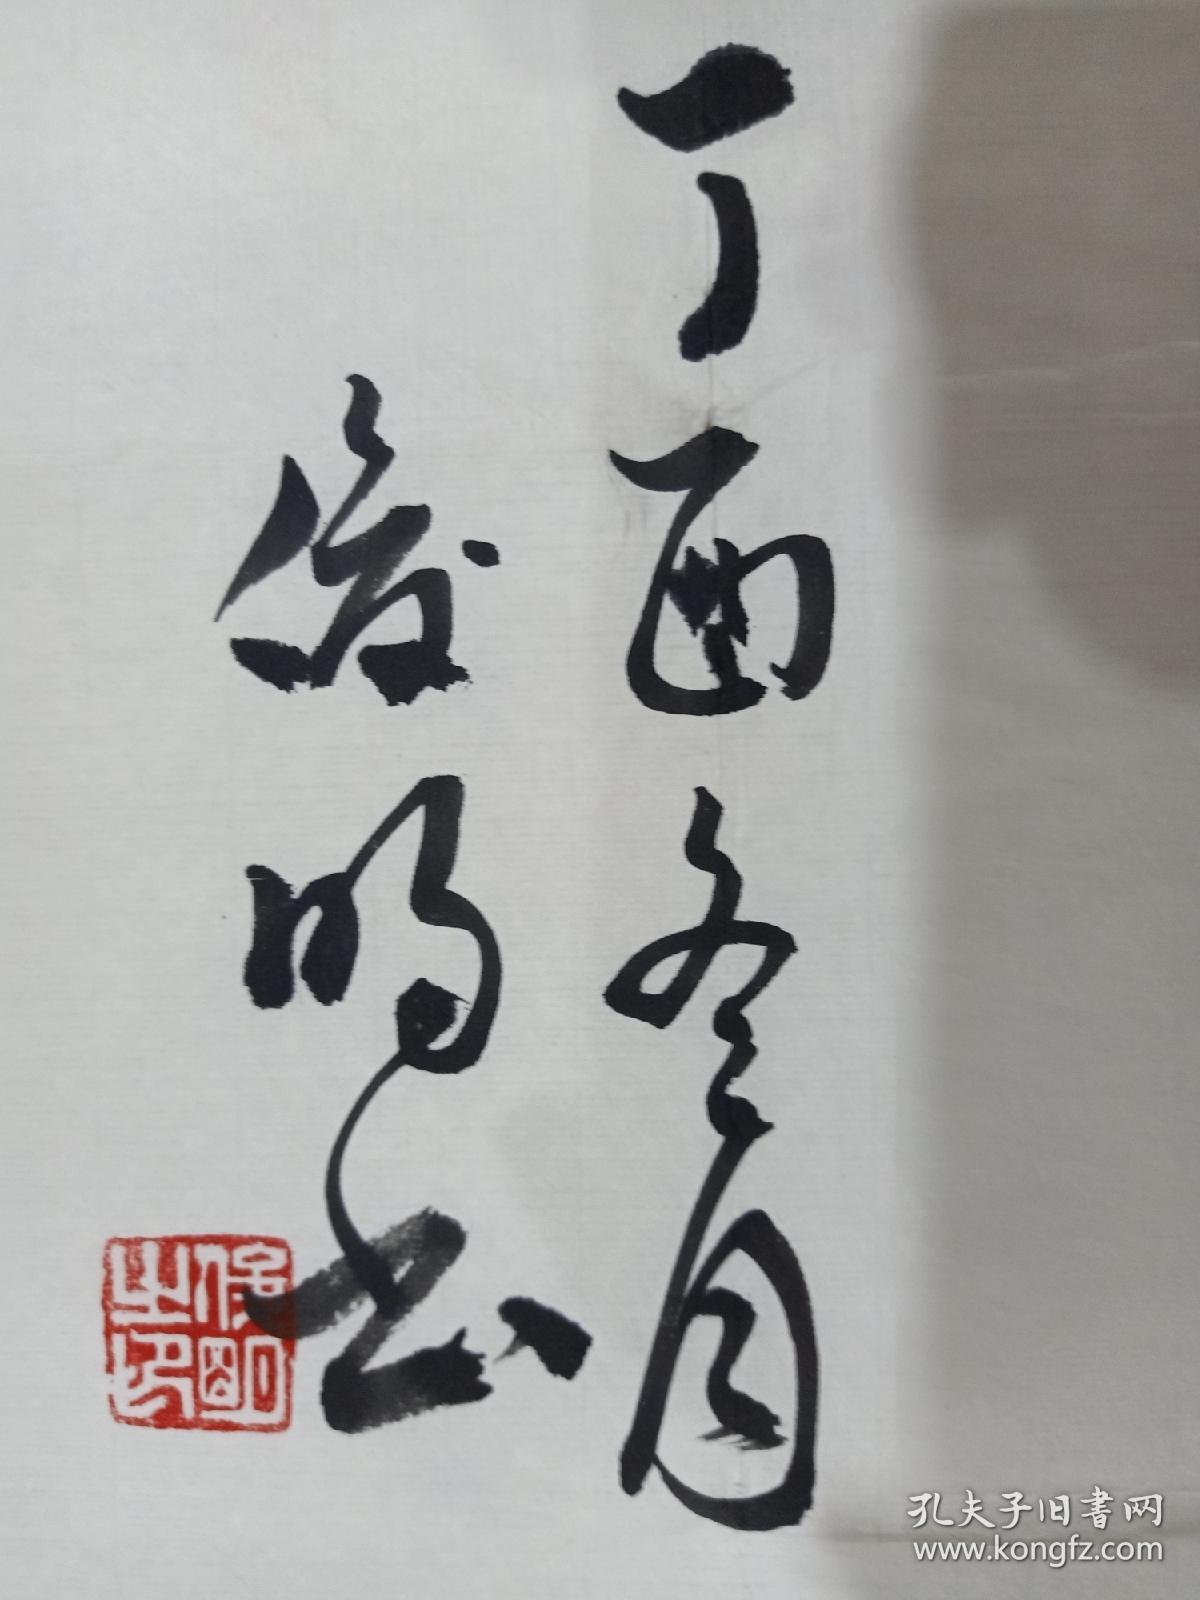 丁酉冬月
俊明书
俊明之印
孔夫子旧书网
www.kongfz.com